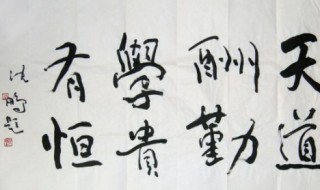 天道
酬勤
學貴
有恒
題